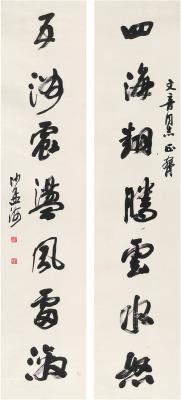 四海翻騰雲水怒
同志正
五洲震盪風雷激
沙孟海